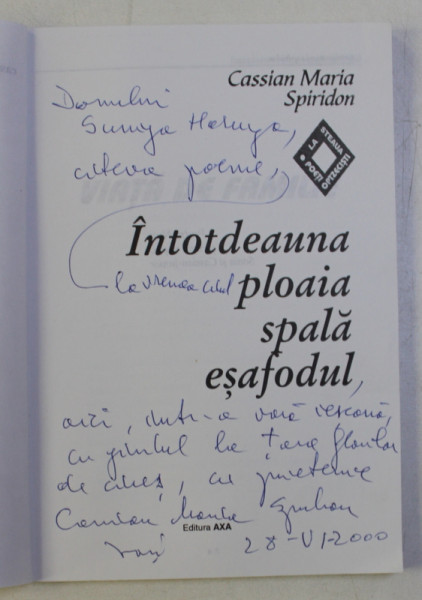 Cassian Maria
Spiridon
LA STEAUA
POEȚI OPTZECIȘTI
Domnului
Sumiya Haruya,
câteva poeme,
la vremea când
Întotdeauna
ploaia
spală
eșafodul,
aici, într-o vară ieșeană,
cu gândul la țara florilor
de cireș, cu prietenie
Cassian Maria Spiridon
Editura AXA
Iași 28-VI-2000